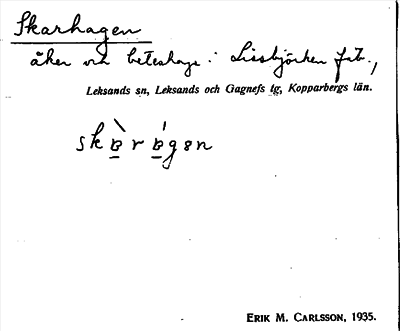 Skarhagen
åker och beteshage i Lissbjörken fäb.,
Leksands sn, Leksands och Gagnefs tg, Kopparbergs län.
ERIK M. CARLSSON, 1935.